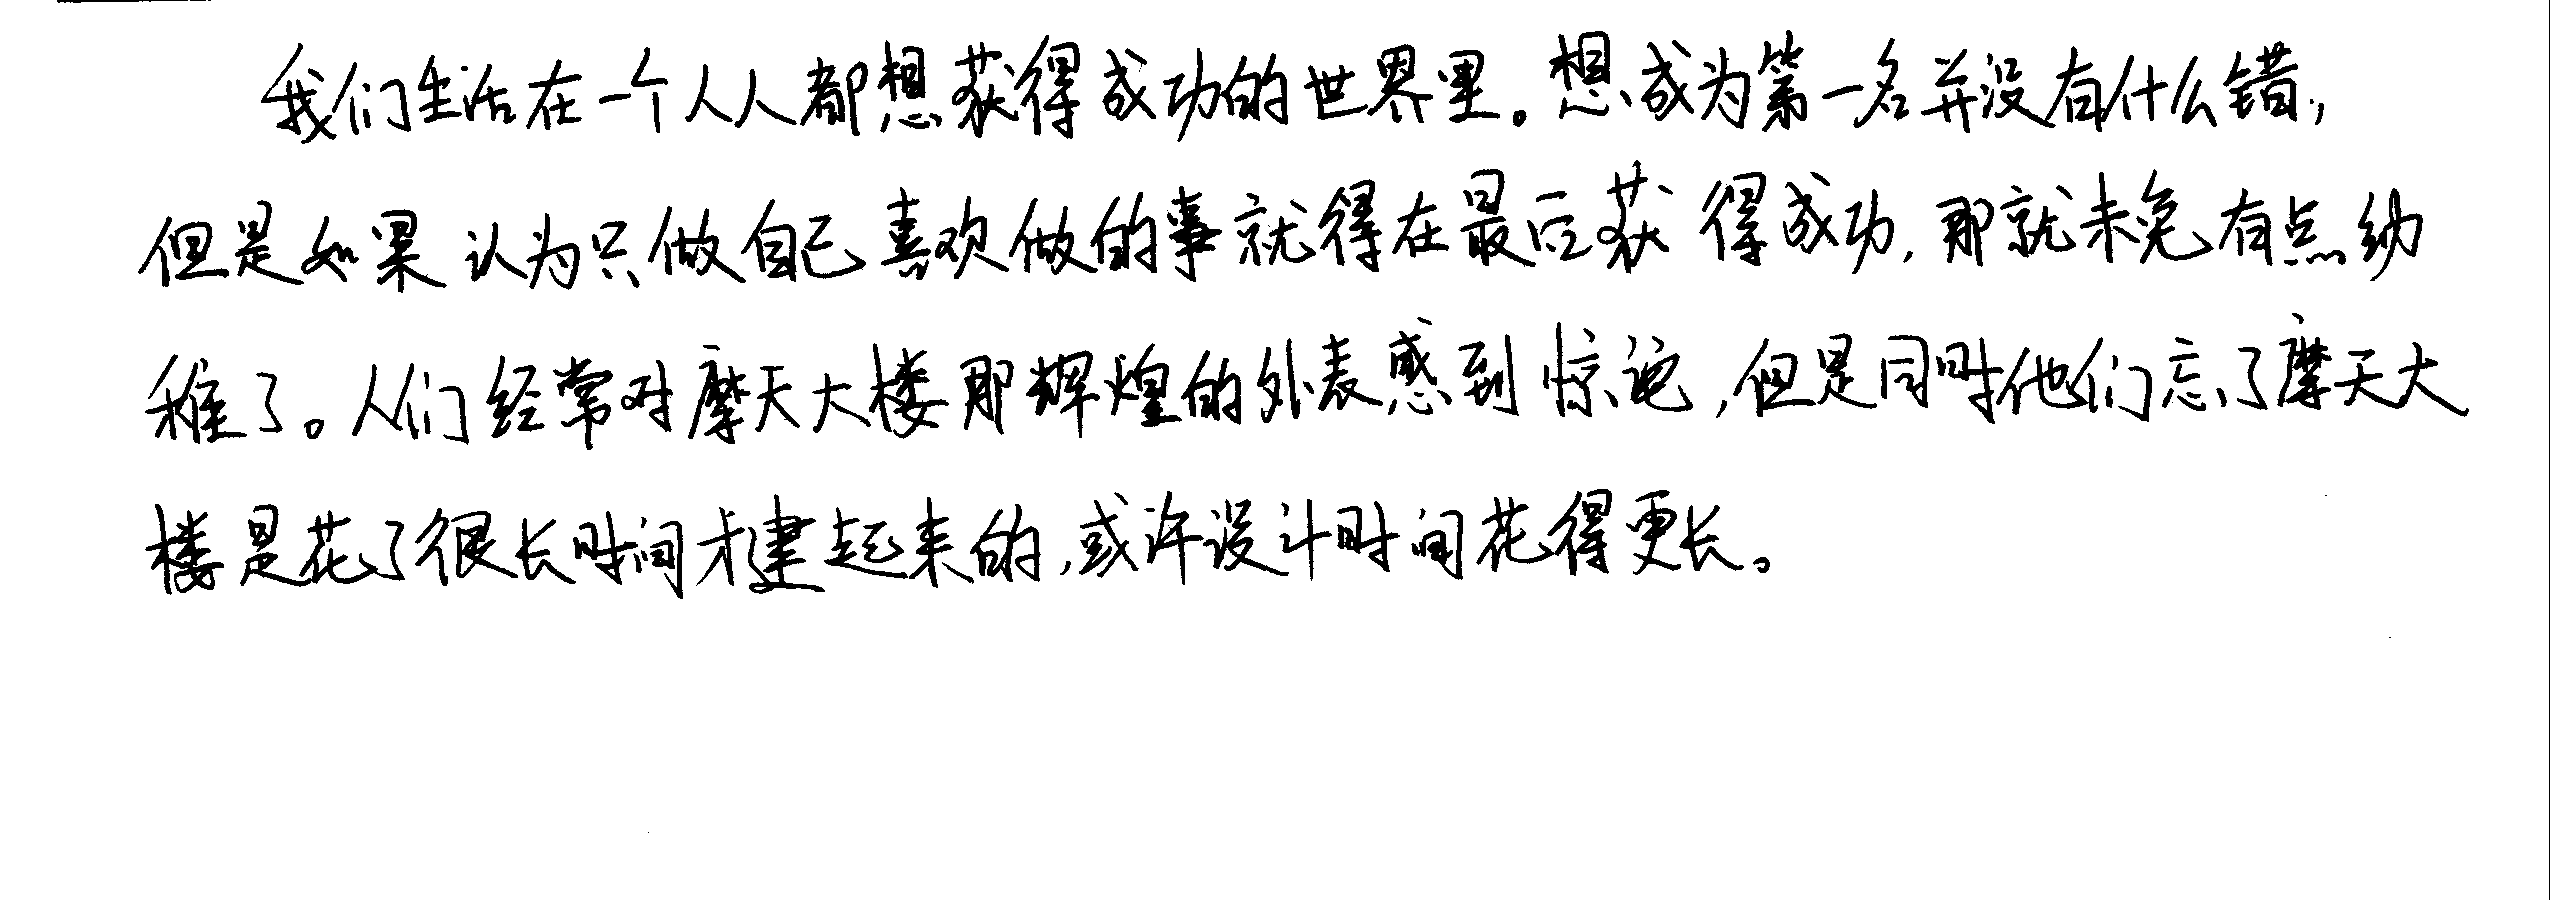 我们生活在一个人人都想获得成功的世界里。想成为第一名并没有什么错,
但是如果认为只做自己喜欢做的事就得在最后获得成功,那就未免有点幼
稚了。人们经常对摩天大楼那辉煌的外表感到惊诧,但是同时他们忘了摩天大
楼是花了很长时间才建起来的,或许设计时间花得更长。